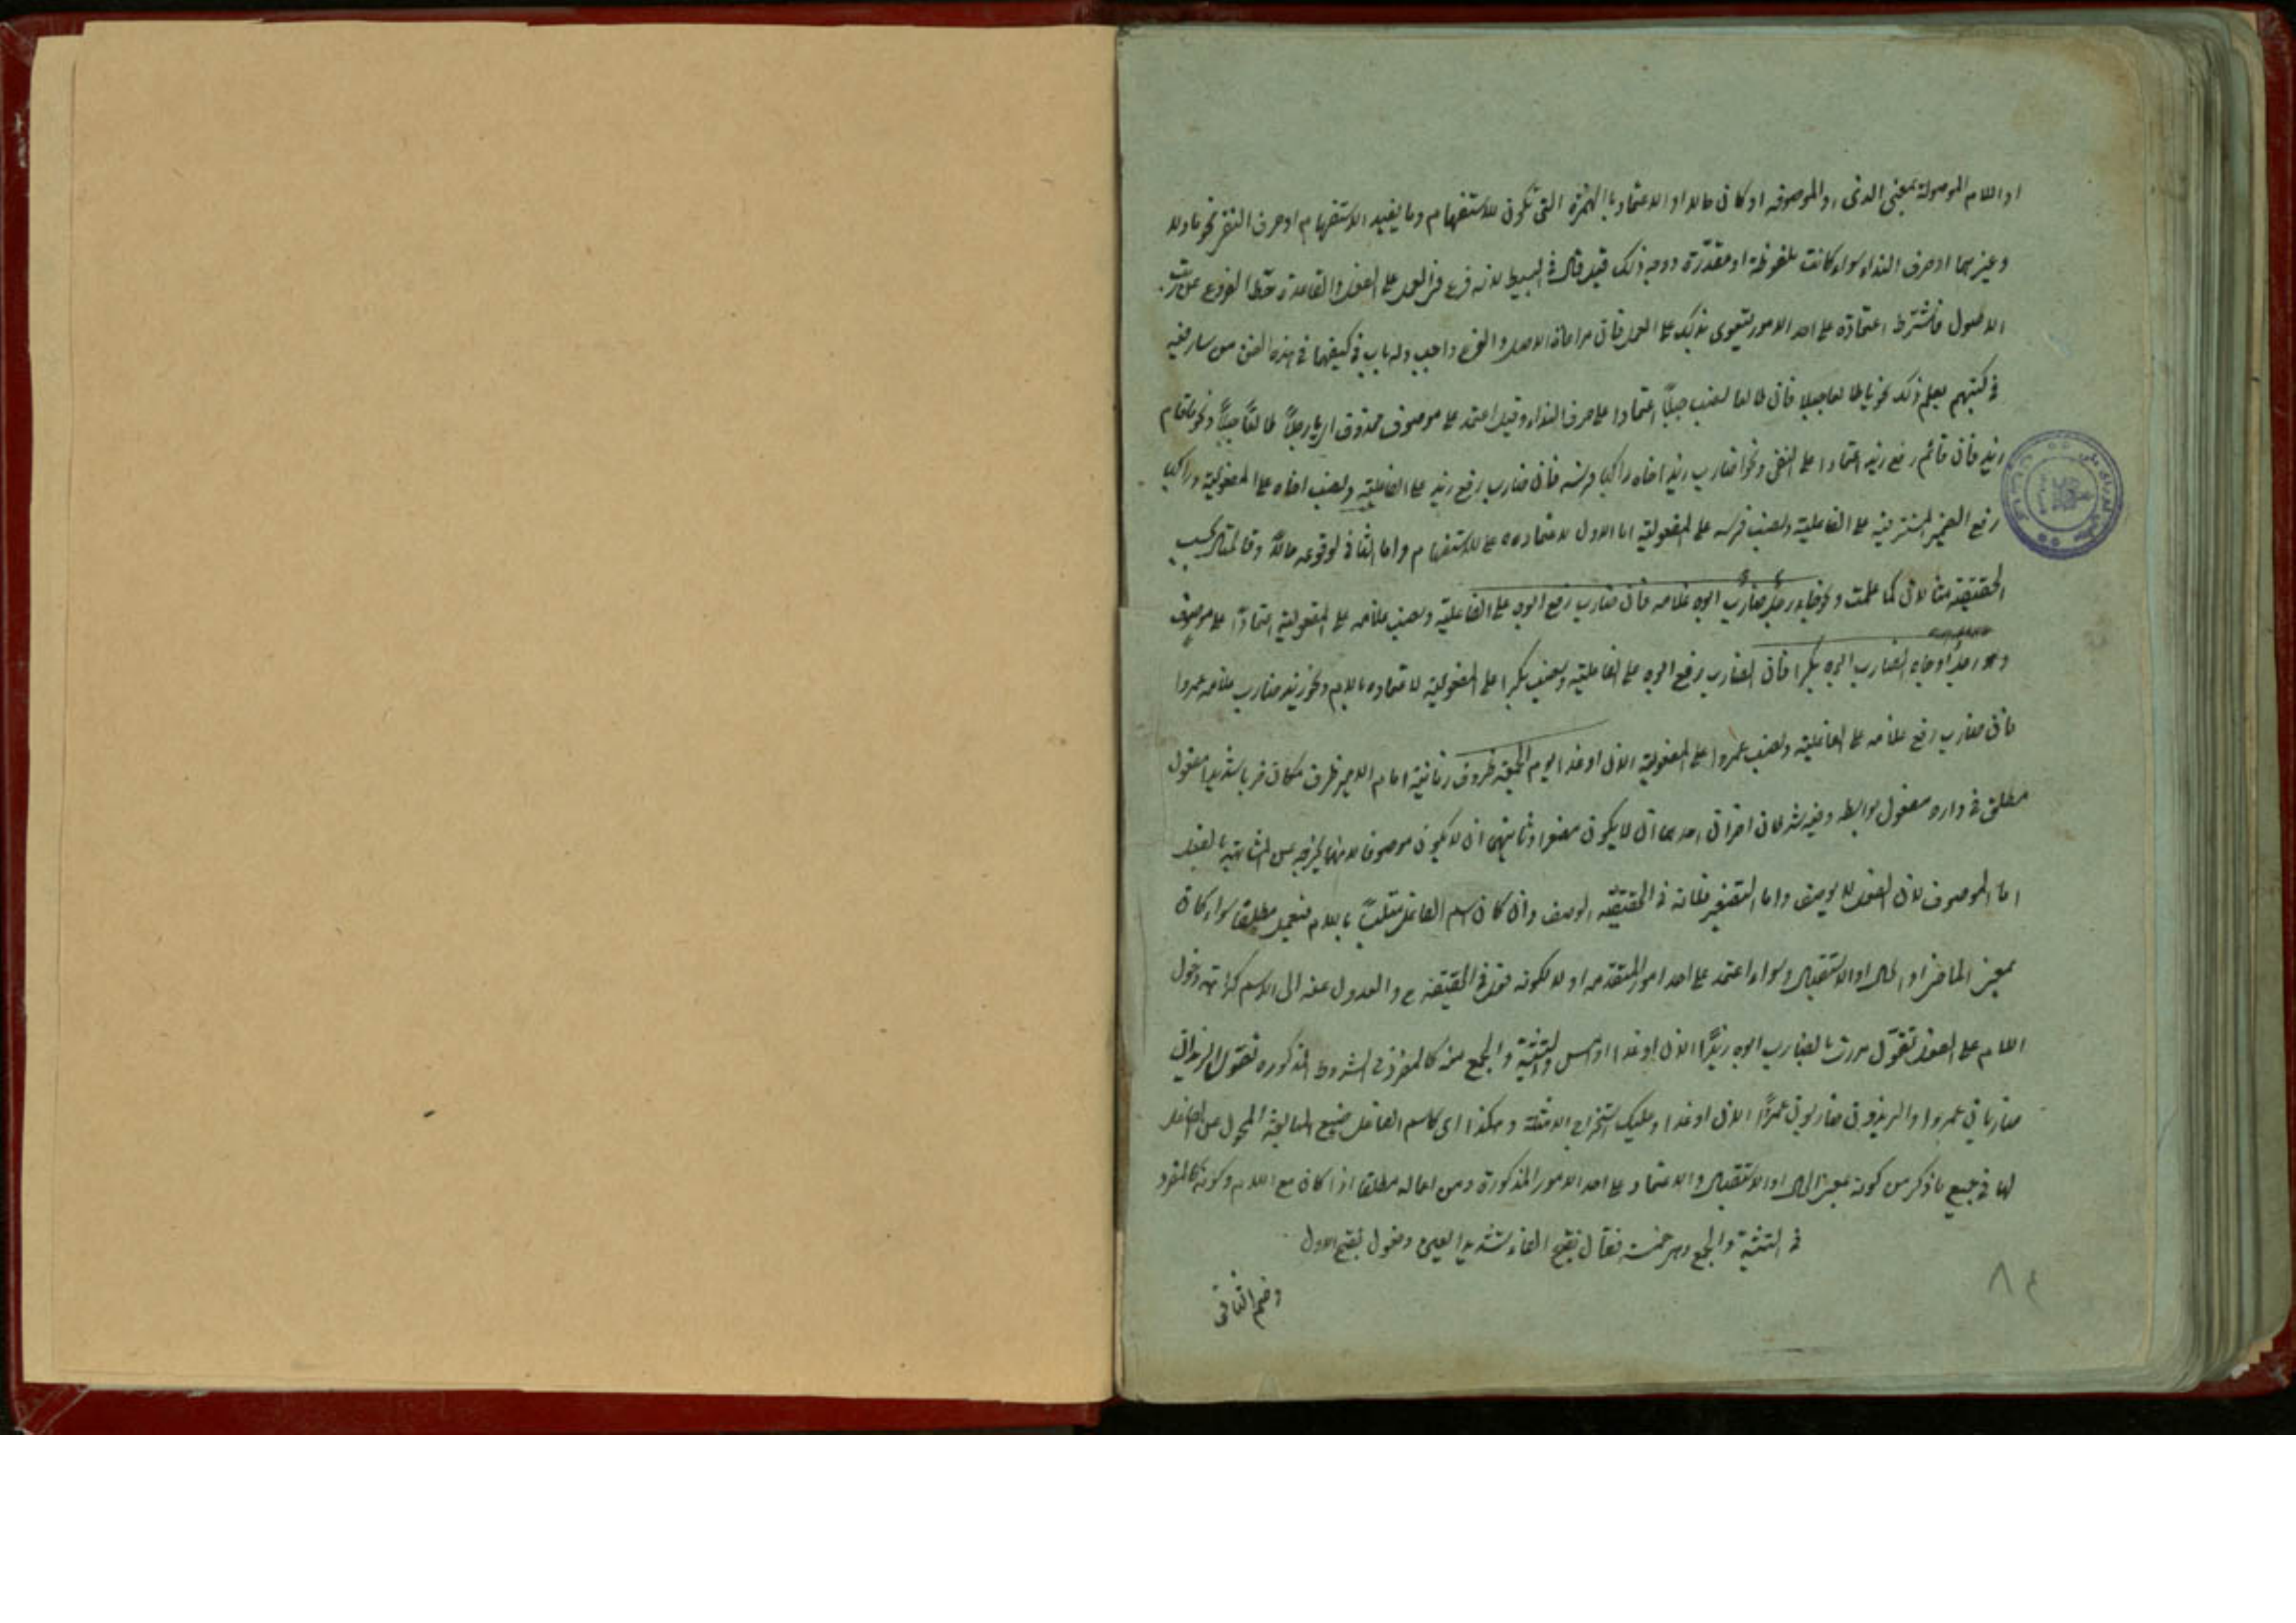 او اللام الموصولة بمعنى الذى او الموصوف او كان حالا او الاعتماد باالهمزة التى تكون للاستفهام وما يفيد الاستفهام او حرف النفى نحو ما ولا
وغيرهما او حرف النداء سواء كانت ملفوظة او مقدّرة ووجه ذلك قيل قال فى البسيط لانه فرع فى العمل على الفعل والقاعدة حطّ الفروع عن رتبة
الاصول فاشترط اعتماده على احد الامور ليتقوى بذلك على العمل فان مراعاة الاصل والفرع واجب وله باب فى كيفيتها فى هذه الفن من سار فيه
فى كتبهم يعلم ذلك نحو يا طالعا جبلا فان طالعا نصب جبلاً اعتمادا على حرف النداء وقيل اعتمد على موصوف محذوف اى يا رجلاً طالعًا جبلاً ونحو ما قائم
زيد فان قائم رفع زيد اعتمادا على النفى ونحو اضارب زيد اخاه راكبا فرسه فان ضارب رفع زيد على الفاعلية ونصب اخاه على المفعولية وراكبا
رفع الضمير المستتر فيه على الفاعلية ونصب فرسه على المفعولية اما الاول لاعتماده على الاستفهام واما الثانى لوقوعه حالاً فالمثال بحسب
الحقيقة مثالان كما علمت ونحو جاء رجل ضارب ابوه غلامه فان ضارب رفع ابوه على الفاعلية ونصب غلامه على المفعولية اعتمادًا على موصوف
وهو رجل او جاء الضارب ابوه بكرا فان الضارب رفع ابوه على الفاعلية ونصب بكرا على المفعولية لاعتماده باللام ونحو زيد ضارب غلامه عمروا
فان ضارب رفع غلامه على الفاعلية ونصب عمروا على المفعولية الان او غدا اليوم الجمعة ظروف زمانية امام الامير ظرف مكان ضربا شديدا مفعول
مطلق فى داره مفعول بواسطه وفيه شرطان اخران احدهما ان لا يكون مصغرا وثانيهما ان لا يكون موصوفا لانهما يخرجه عن المشابهة بالفعل
اما الموصوف لان الفعل لا يوصف واما التصغير فلانه فى الحقيقة الوصف وان كان اسم الفاعل متلبسًا باللام فيعمل مطلقا سواء كان
بمعنى الماضى او الحال او الاستقبال وسواء اعتمد على احد امور المتقدمه او لا لكونه فعل فى الحقيقة والعدول عنه الى الاسم كراهة دخول
اللام على الفعل تقول مررت بالضارب ابوه زيدًا الان او غدا او امس والتثنية والجمع منه كالمفرد فى الشروط المذكوره تقول الزيدان
ضاربان عمروا والزيدون ضاربون عمروًا الان او غدا وعليك استخراج الامثلة وهكذا اى كاسم الفاعل صيغ المبالغة المحول عن الفاعل
لها فى جميع ما ذكر من كونه بمعنى الحال او الاستقبال والاعتماد على احد الامور المذكورة ومن اعماله مطلقا اذا كان مع اللام وكونه كالمفرد
فى التثنية والجمع وهى خمسة فعّال بفتح الفاء وتشديد العين وفعول بفتح الاول
وضم الثانى